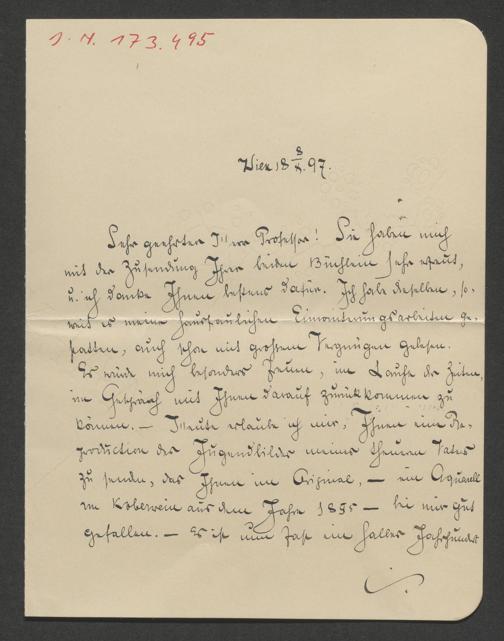 J. N. 173.495
Wien 18 8/X. 97.
Sehr geehrter Herr Professor! Sie haben mich
mit der Zusendung Ihrer beiden Büchlein sehr erfreut,
u. ich danke Ihnen bestens dafür. Ich habe dieselben, so-
weit es meine hausfraulichen Einwinterungsarbeiten ge-
statten, auch schon mit großem Vergnügen gelesen.
Es würde mich besonders freuen, im Laufe der Zeiten,
im Gespräch mit Ihnen darauf zurückkommen zu
können. — Heute erlaube ich mir, Ihnen eine Re-
production des Jugendbildes meines theuren Vaters
zu senden, das Ihnen im Original, — ein Aquarell
aus dem Jahre — bei mir gut
gefallen. — Es ist nun fast ein halbes Jahrhundert